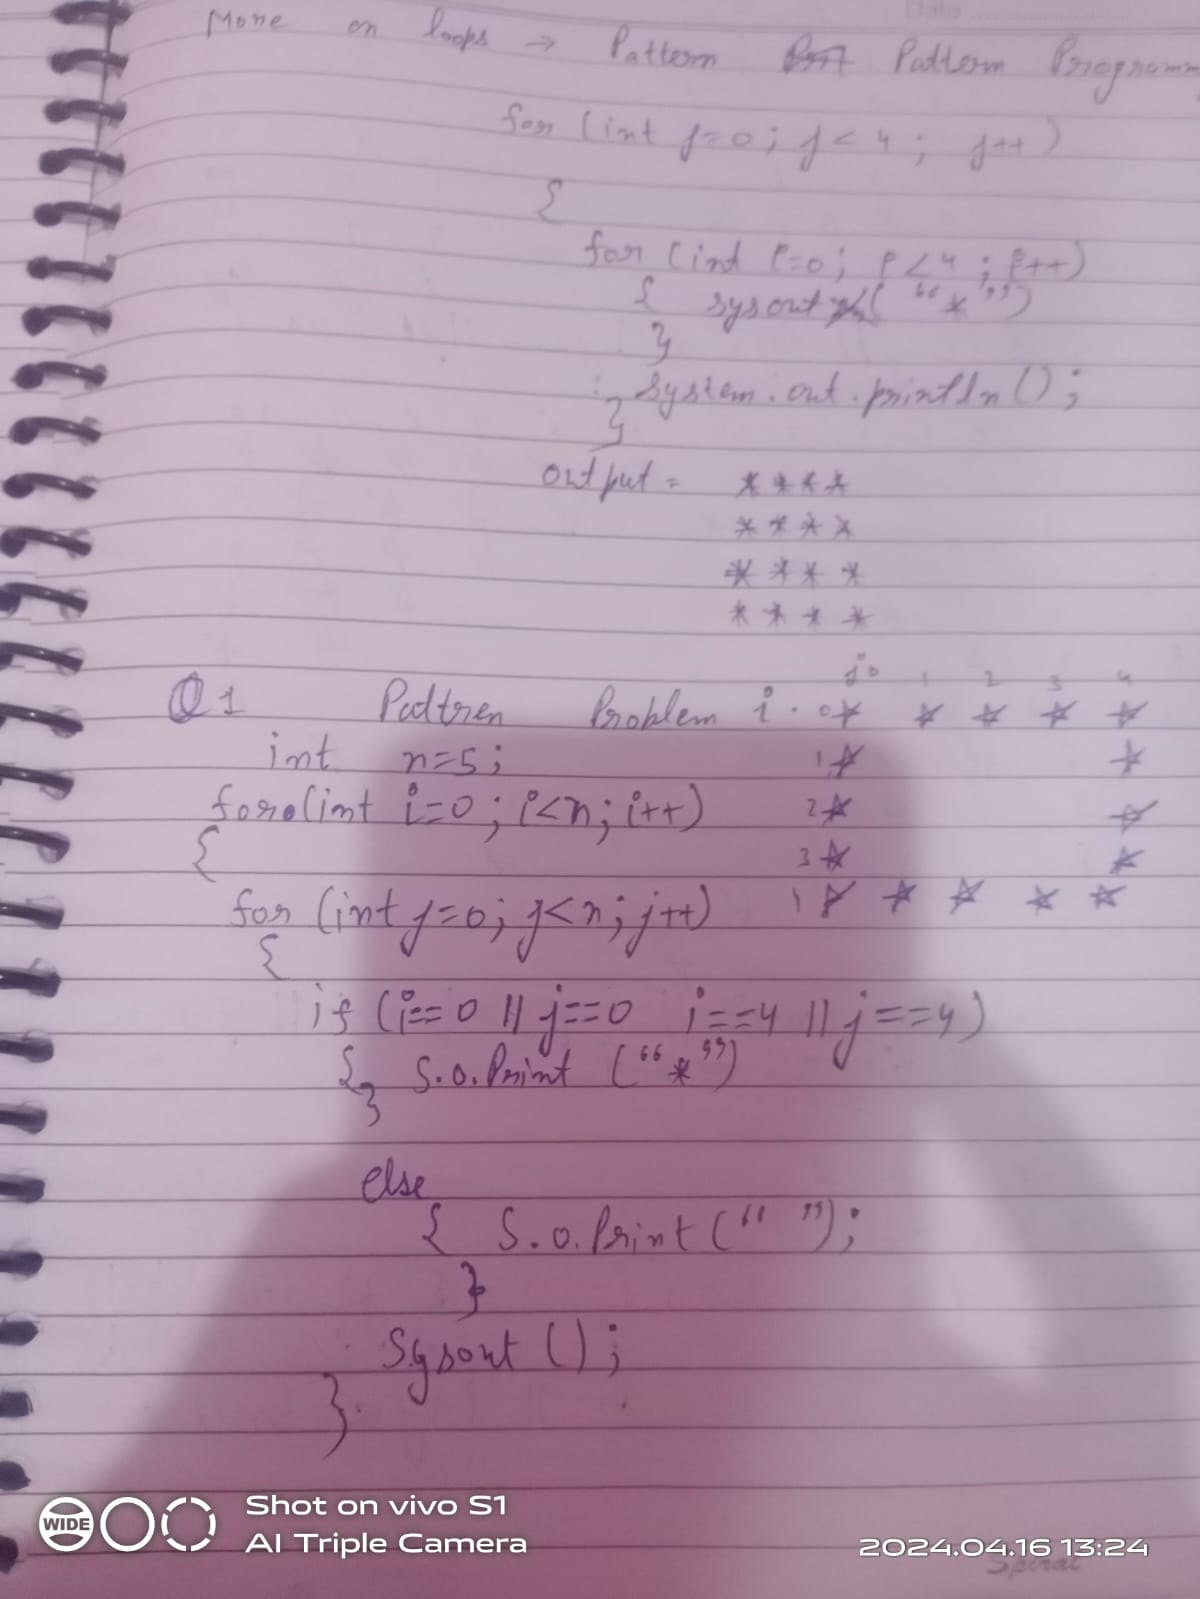 Date
More on loops → Pattern Pattern Programm
for (int j=0; j<4; j++)
{
for (int i=0; i<4; i++)
{ sysout ("*")
}
System.out.println();
}
output = * * * *
* * * *
* * * *
* * * *
j0 1 2 3 4
Q1 Pattren Problem i. 0* * * * *
int n=5; 1* *
for(int i=0; i<n; i++) 2* *
{ 3* *
for (int j=0; j<n; j++) 1* * * * *
{
if (i==0 || j==0 i==4 || j==4)
{ S.o.Print ("*")
}
else
{ S.o.Print (" ");
}
Sysout ();
}
WIDE
Shot on vivo S1
AI Triple Camera
2024.04.16 13:24
Spiral